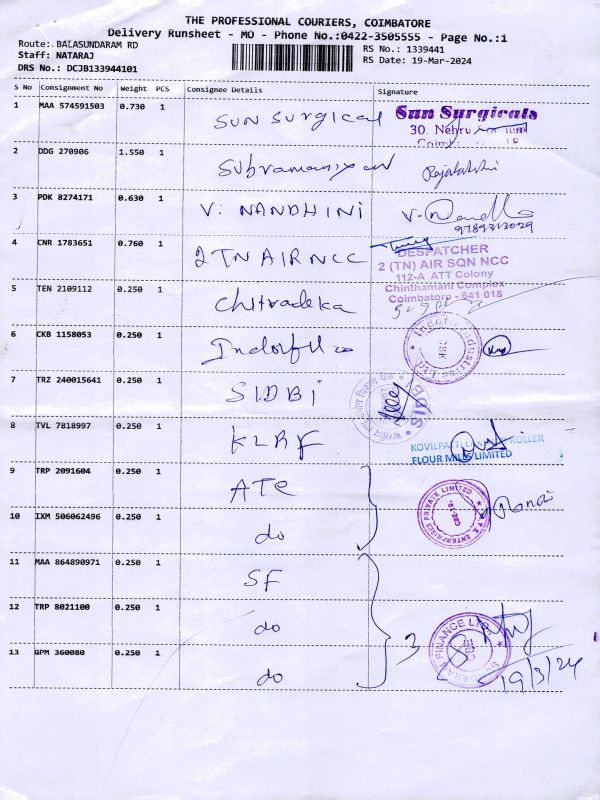 THE PROFESSIONAL COURIERS, COIMBATORE
Delivery Runsheet - MO - Phone No.:0422-3505555 - Page No.:1
Route: BALASUNDARAM RD
RS No.: 1339441
Staff: NATARAJ
RS Date: 19-Mar-2024
DRS No.: DCJB133944101
S No Consignment No Weight PCS Consignee Details Signature
1 MAA 574591503 0.730 1 SUN SURGICAL Sun Surgicals
30, Nehru
2 DDG 270906 1.550 1 Subramaniyan Rajalakshmi
3 PDK 8274171 0.630 1 V. NANDHINI V. Nandhini
9789313029
4 CNR 1783651 0.760 1 2 TN AIR NCC DESPATCHER
2 (TN) AIR SQN NCC
112-A ATT Colony
Chinthamani Complex
Coimbatore - 641 018
5 TEN 2109112 0.250 1 Chitradeka
6 CKB 1158053 0.250 1
7 TRZ 240015641 0.250 1 SIDBI SIDBI
8 TVL 7818997 0.250 1 KLRF ROLLER
FLOUR MILLS LIMITED
9 TRP 2091604 0.250 1 ATE ENTERPRISES PRIVATE LIMITED
10 IXM 506062496 0.250 1 do
11 MAA 864890971 0.250 1 SF
12 TRP 8021100 0.250 1 do 3 FINANCE LTD
13 GPM 360080 0.250 1 do 19/3/24